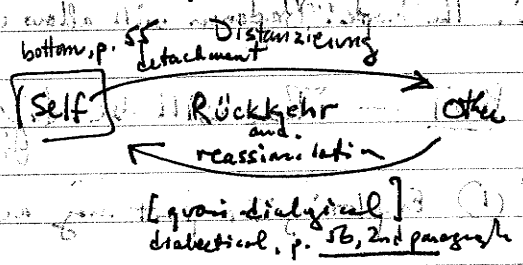 bottom, p. 55 Distanzierung
detachment
Self Rückkehr Other
and
reassimilation
[quasi-dialogical]
dialectical, p. 56, 2nd paragraph